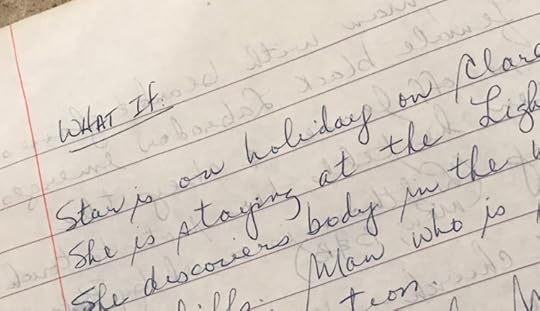 WHAT If.
Star is on holiday on Clare
She is staying at the Ligh
She discovers body in the w
Man who is
tion.